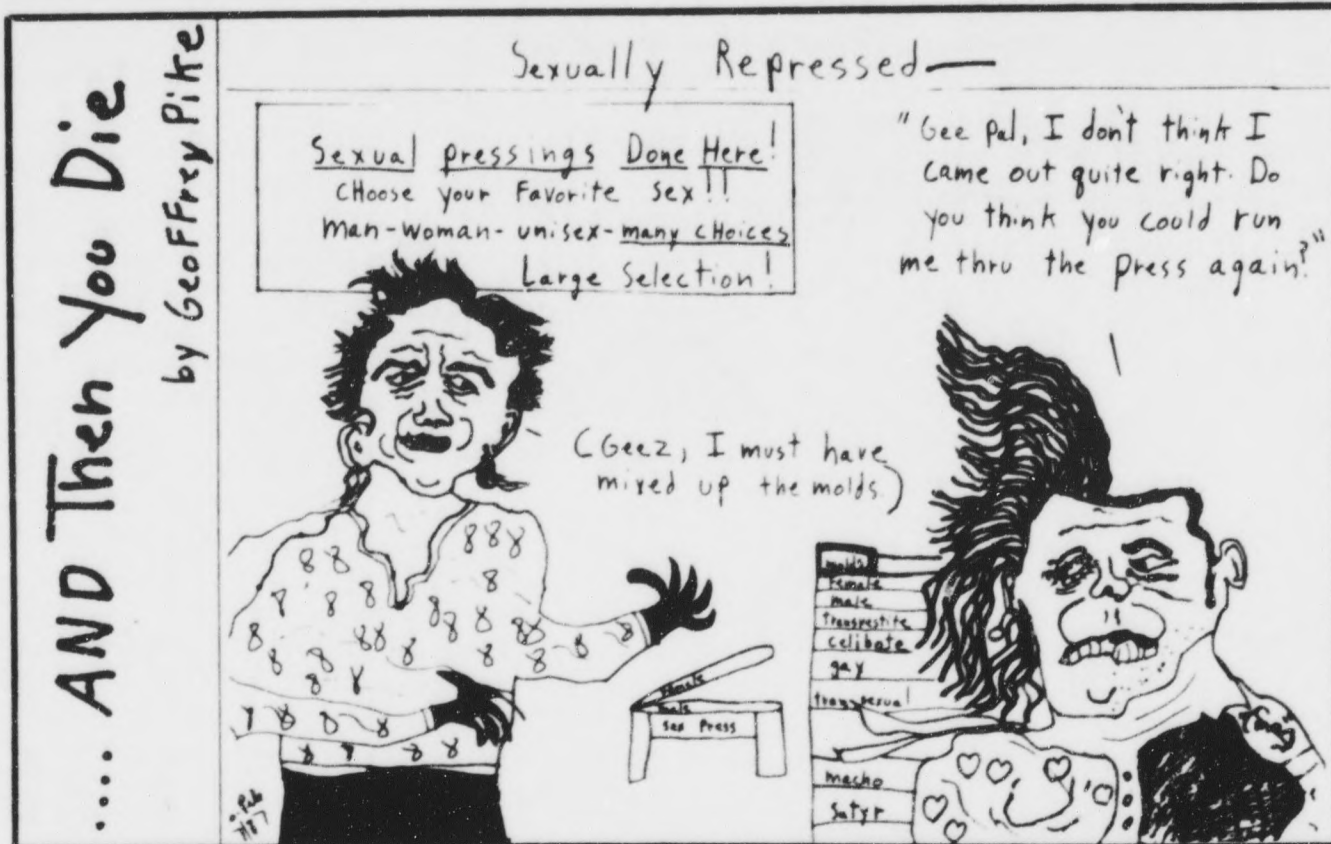 .... AND Then You Die
by GeoFFrey Pike
Sexually Repressed—
Sexual pressings Done Here!
CHoose your Favorite sex!!
man-woman-unisex-many cHoices
Large Selection!
"Gee pal, I don't think I
came out quite right. Do
you think you could run
me thru the press again?"
(Geez, I must have
mixed up the molds.)
molds
female
male
transvestite
celibate
gay
transexual
macho
satyr
female
male
sex Press